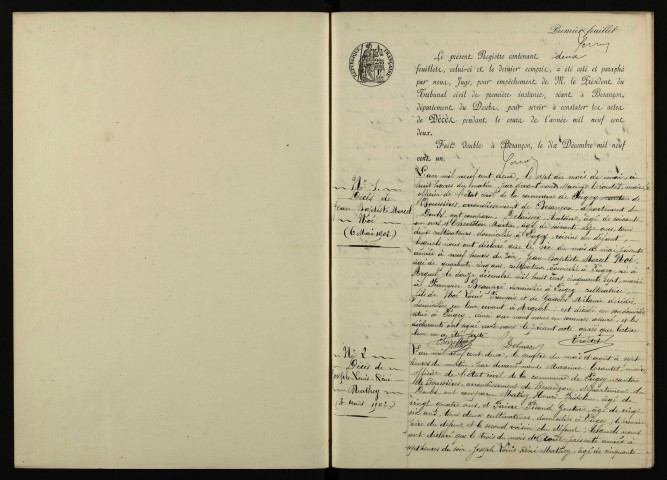 Premier feuillet
Le présent Registre contenant deux
feuillets, celui-ci et le dernier compris, a été coté et paraphé
par nous, Juge, pour empêchement de M. le Président du
Tribunal civil de première instance, séant à Besançon,
département du Doubs, pour servir à constater les actes
de Décès pendant le cours de l'année mil neuf cent
deux.
Fait double à Besançon, le dix Décembre mil neuf
cent un.
RÉPUBLIQUE FRANÇAISE
N° 1.
Décès de
Jean Baptiste Marcel
Noé
(6 Mai 1902)
L'an mil neuf cent deux, le sept du mois de mai, à
huit heures du matin, par devant nous
officier de l'état civil de la commune de Pugey canton de
Boussières, arrondissement de Besançon, département du
Doubs, ont comparu Antoine, âgé de soixante
ans et Martin, âgé de soixante ans, tous
deux cultivateurs, domiciliés à Pugey, voisins du défunt,
lesquels nous ont déclaré que le six du mois de mai présente
année à neuf heures du soir, Jean Baptiste Marcel Noé,
âgé de quarante cinq ans, cultivateur, domicilié à Pugey, né à
Arguel le douze décembre mil huit cent cinquante sept, marié
à Françoise domiciliée à Pugey, cultivatrice,
fils de Noé Louis François et de décédés,
domiciliés en leur vivant à Arguel, est décédé en son domicile
situé à Pugey, ainsi que nous nous en sommes assuré, et les
déclarants ont signé avec nous le présent acte après que lecture
leur en a été faite.
N° 2
Décès de
Joseph Louis Réné
Mathey
(3 1902)
L'an mil neuf cent deux, le quatre du mois d'août à sept
heures du matin, par devant nous
officier de l'état civil de la commune de Pugey canton
de Boussières, arrondissement de Besançon, département du
Doubs ont comparu Mathey Henri âgé de
vingt quatre ans, et Gustave, âgé de vingt
six ans, tous deux cultivateurs, domiciliés à Pugey, le premier
du défunt et le second voisin du défunt, lesquels nous
ont déclaré que le trois du mois de présente année à
sept heures du soir, Joseph Louis Réné Mathey, âgé de cinquante-